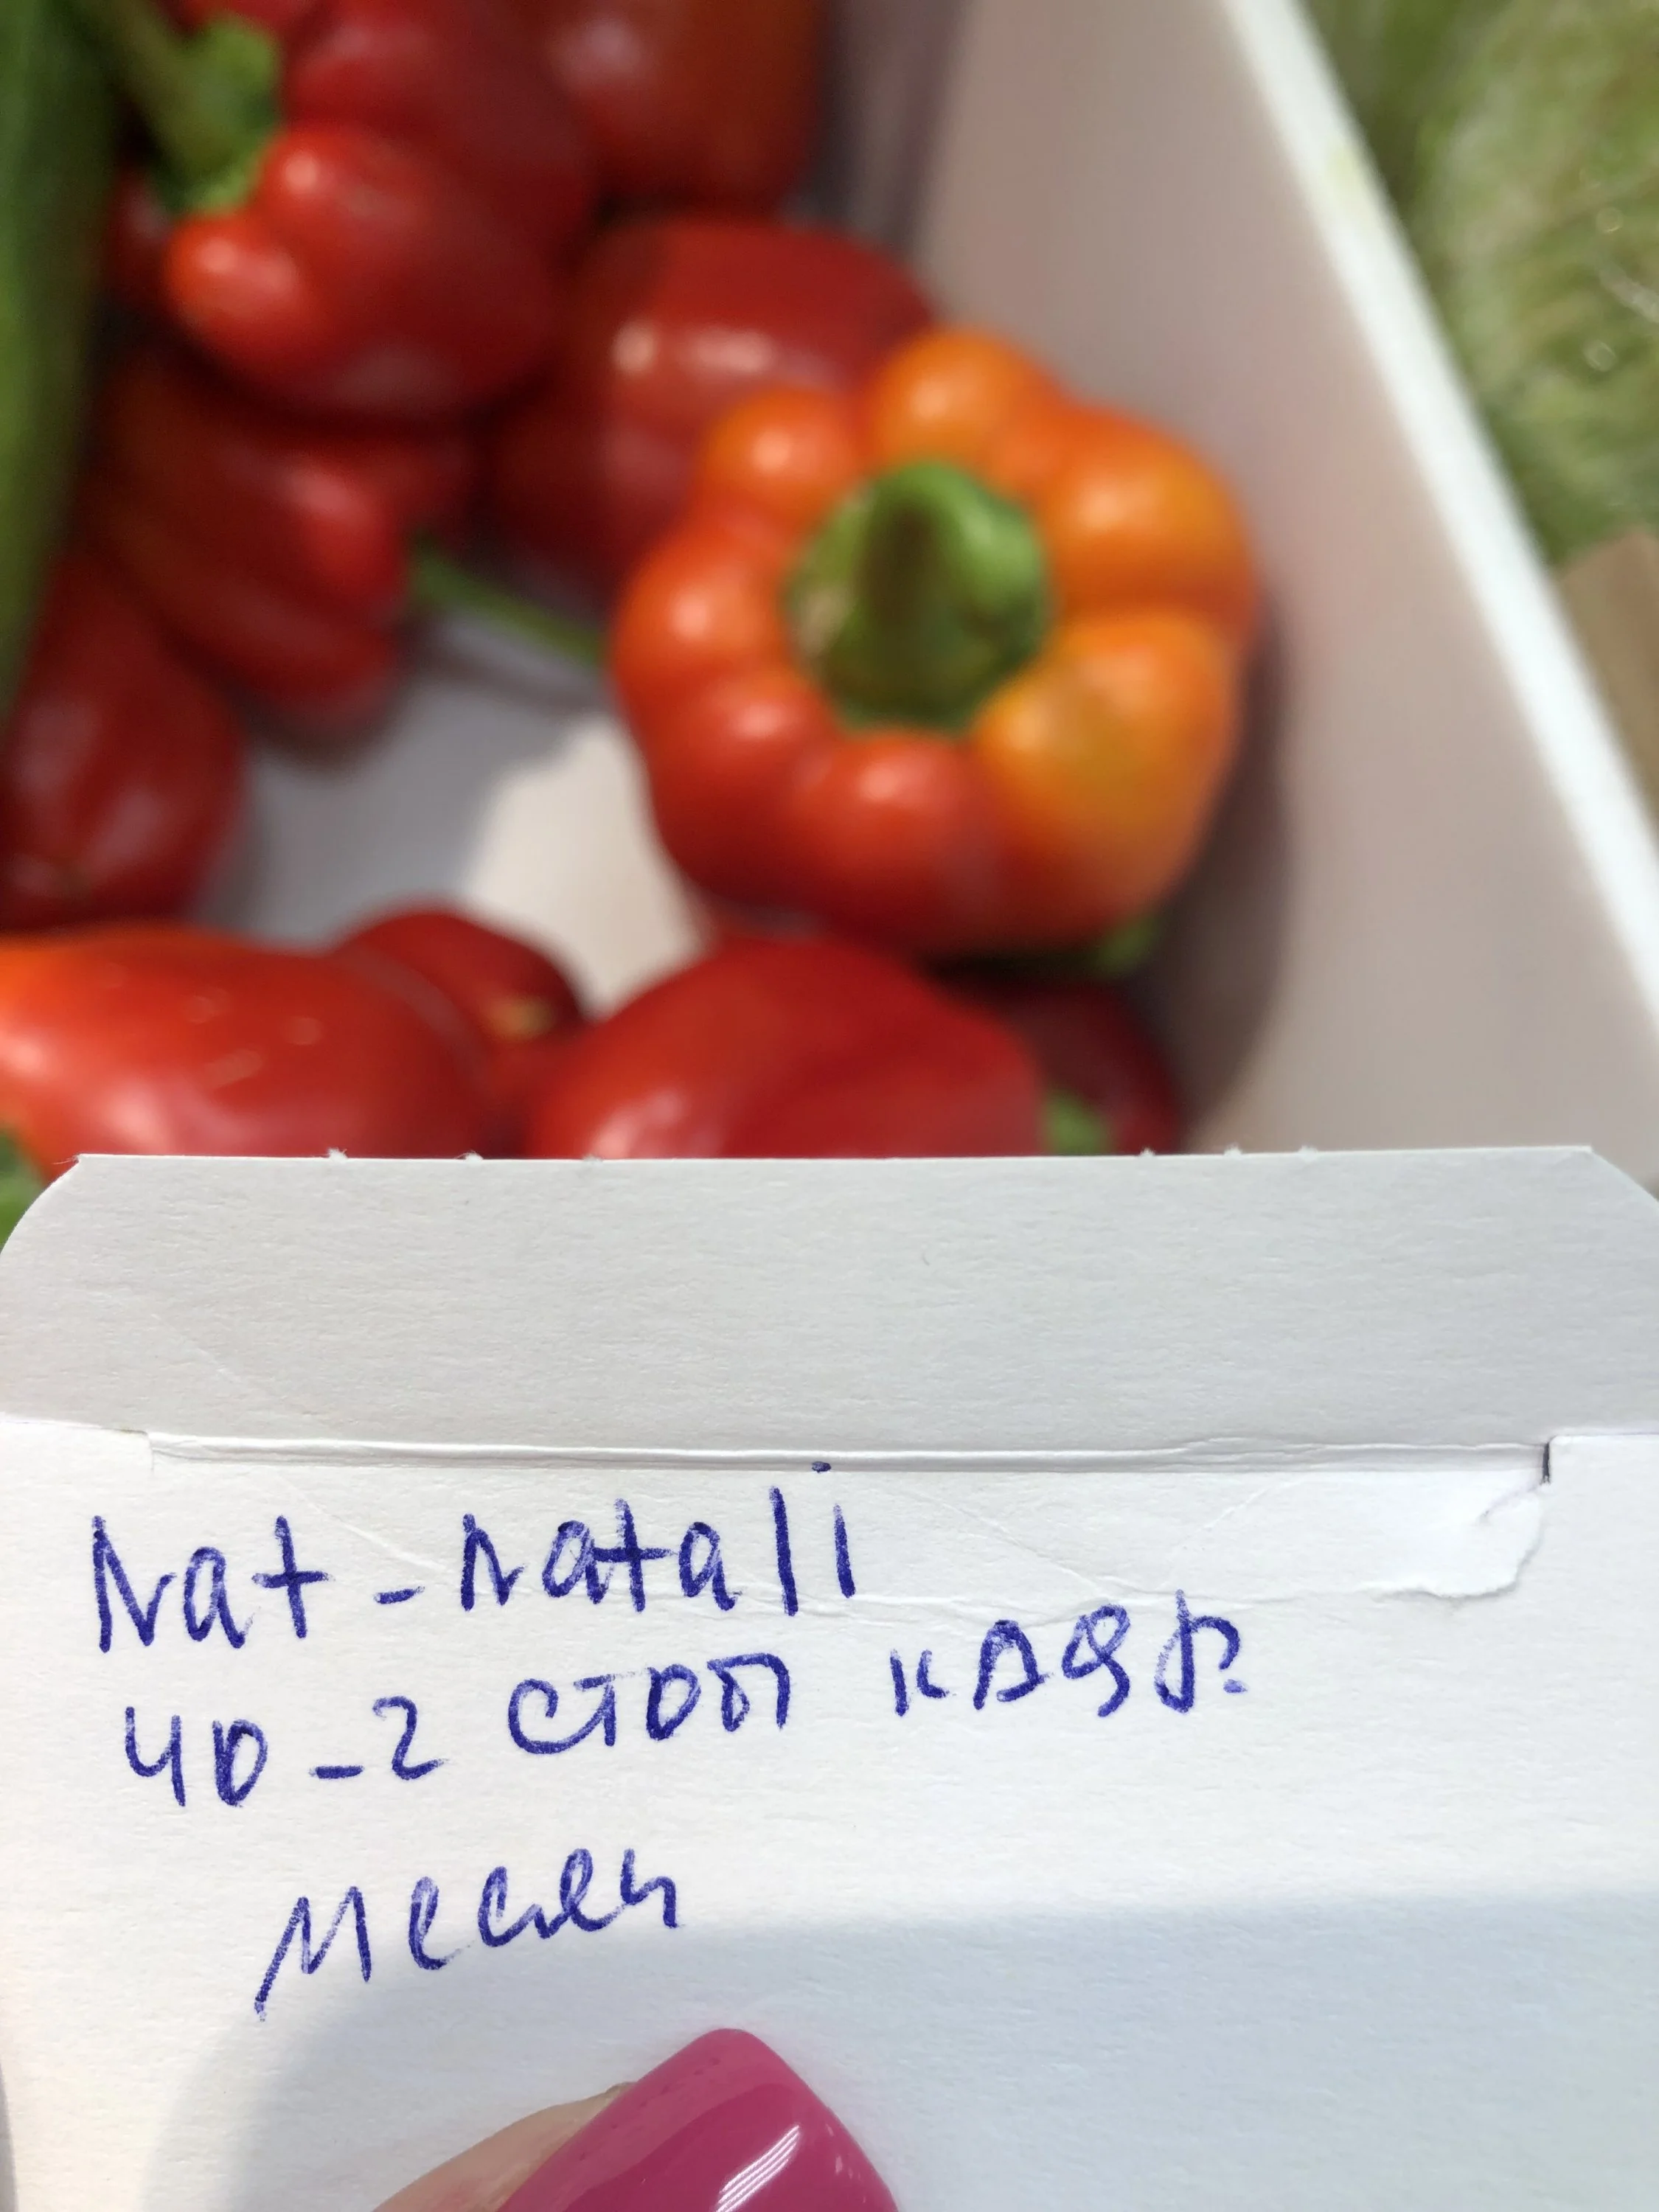 Nat-Natali
40-2 стоп кадр.
Месяц